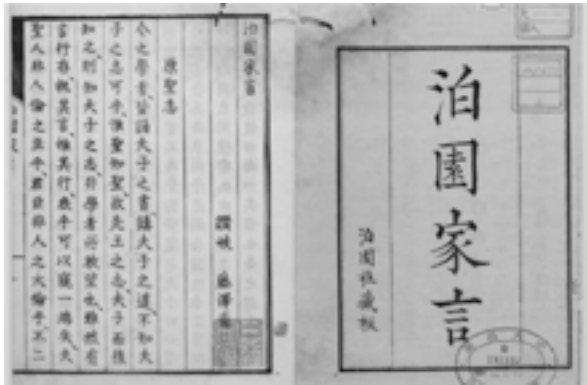 泊園家言
泊園社藏板
泊園家言
讃岐 藤澤
原聖志
今之學者皆誦夫子之書講夫子之道不知夫
子之志可乎惟聖知聖故先王之志夫子而後
知之則知夫子之志非學者所敢望也雖然有
言行存執其言推其行庶乎可以窺一端矣夫
聖人非人倫之至乎君臣非人之大倫乎不二